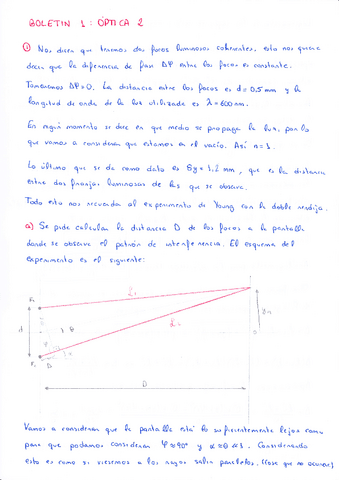 BOLETIN 1: ÓPTICA 2
① Nos dicen que tenemos dos focos luminosos coherentes, esto nos quiere
decir que la diferencia de fase Δφ entre los focos es constante.
Tomaremos Δφ=0. La distancia entre los focos es d=0.5mm y la
longitud de onda de la luz utilizada es λ=600nm.
En ningún momento se dice en que medio se propaga la luz, por lo
que vamos a considerar que estamos en el vacío. Así n=1.
Lo último que se da como dato es δy=1.2 mm, que es la distancia
entre dos franjas luminosas de las que se observa.
Todo esto nos recuerda al experimento de Young con la doble rendija.
a) Se pide calcular la distancia D de los focos a la pantalla
donde se observe el patrón de interferencia. El esquema del
experimento es el siguiente:
d
θ
D
Vamos a considerar que la pantalla está lo suficientemente lejos como
para que podamos considerar φ≈90° y α≈θ≪1. Considerando
esto es como si viésemos a los rayos salir paralelos. (cosa que no ocurre)